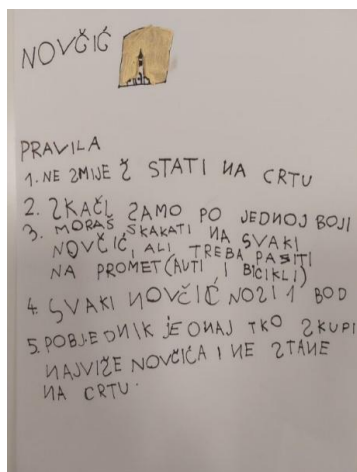 NOVČIĆ
PRAVILA
1. NE SMIJEŠ STATI NA CRTU
2. SKAČI SAMO PO JEDNOJ BOJI
3. MORAŠ SKAKATI NA SVAKI
NOVČIĆ, ALI TREBA PASITI
NA PROMET (AUTI, I BICIKLI)
4. SVAKI NOVČIĆ NOSI 1 BOD
5. POBJEDNIK JE ONAJ TKO SKUPI
NAJVIŠE NOVČIĆA I NE STANE
NA CRTU.